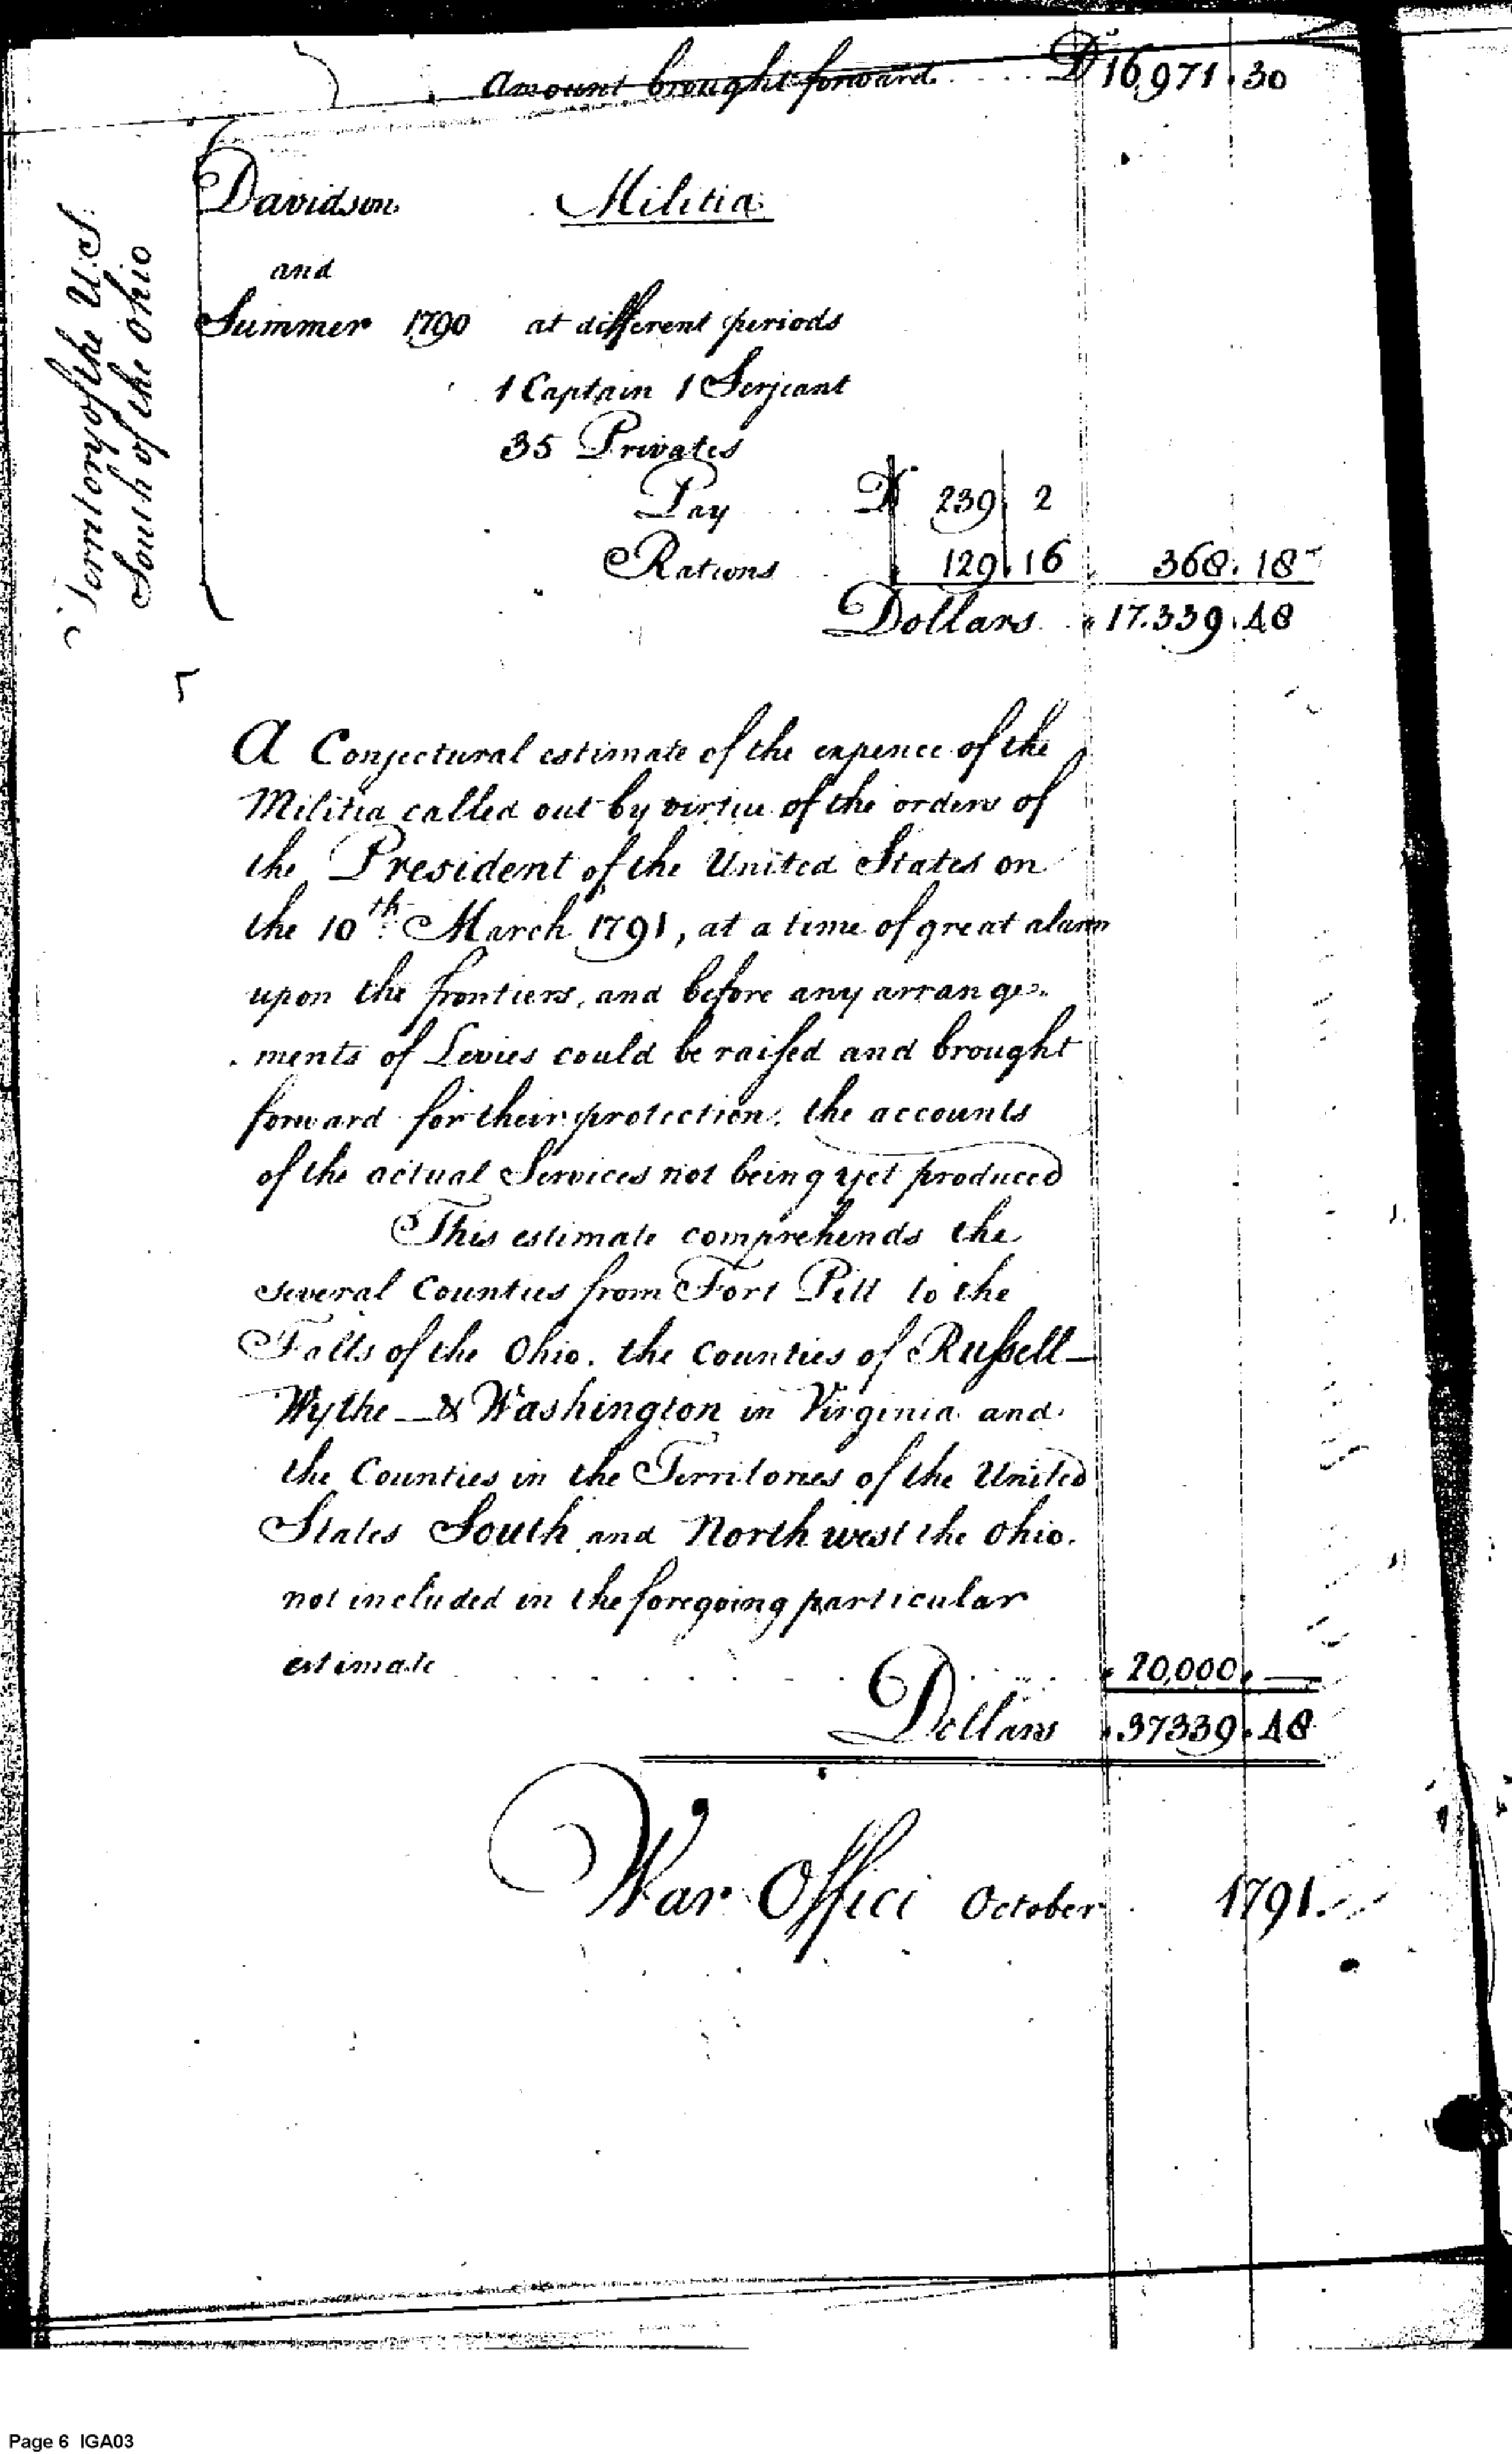 Amount brought forward .... D 16,971.30
Territory of the U.S.
South of the Ohio
Davidson Militia
and
Summer 1790 at different periods
1 Captain 1 Serjeant
35 Privates
Pay ... D 239. 2
Rations .. 129.16 368.18
Dollars 17.339.48
A Conjectural estimate of the expence of the
Militia called out by virtue of the orders of
the President of the United States on
the 10th March 1791, at a time of great alarm
upon the frontiers, and before any arrange-
ments of Levies could be raised and brought
forward for their protection, the accounts
of the actual Services not being yet produced
This estimate comprehends the
several Counties from Fort Pitt to the
Falls of the Ohio. the Counties of Russell—
Wythe — & Washington in Virginia and
the Counties in the Territories of the United
States South and North west the Ohio.
not included in the foregoing particular
estimate . . . . . . . . 20,000. —
Dollars 37339.48
War Office October 1791.
Page 6 IGA03